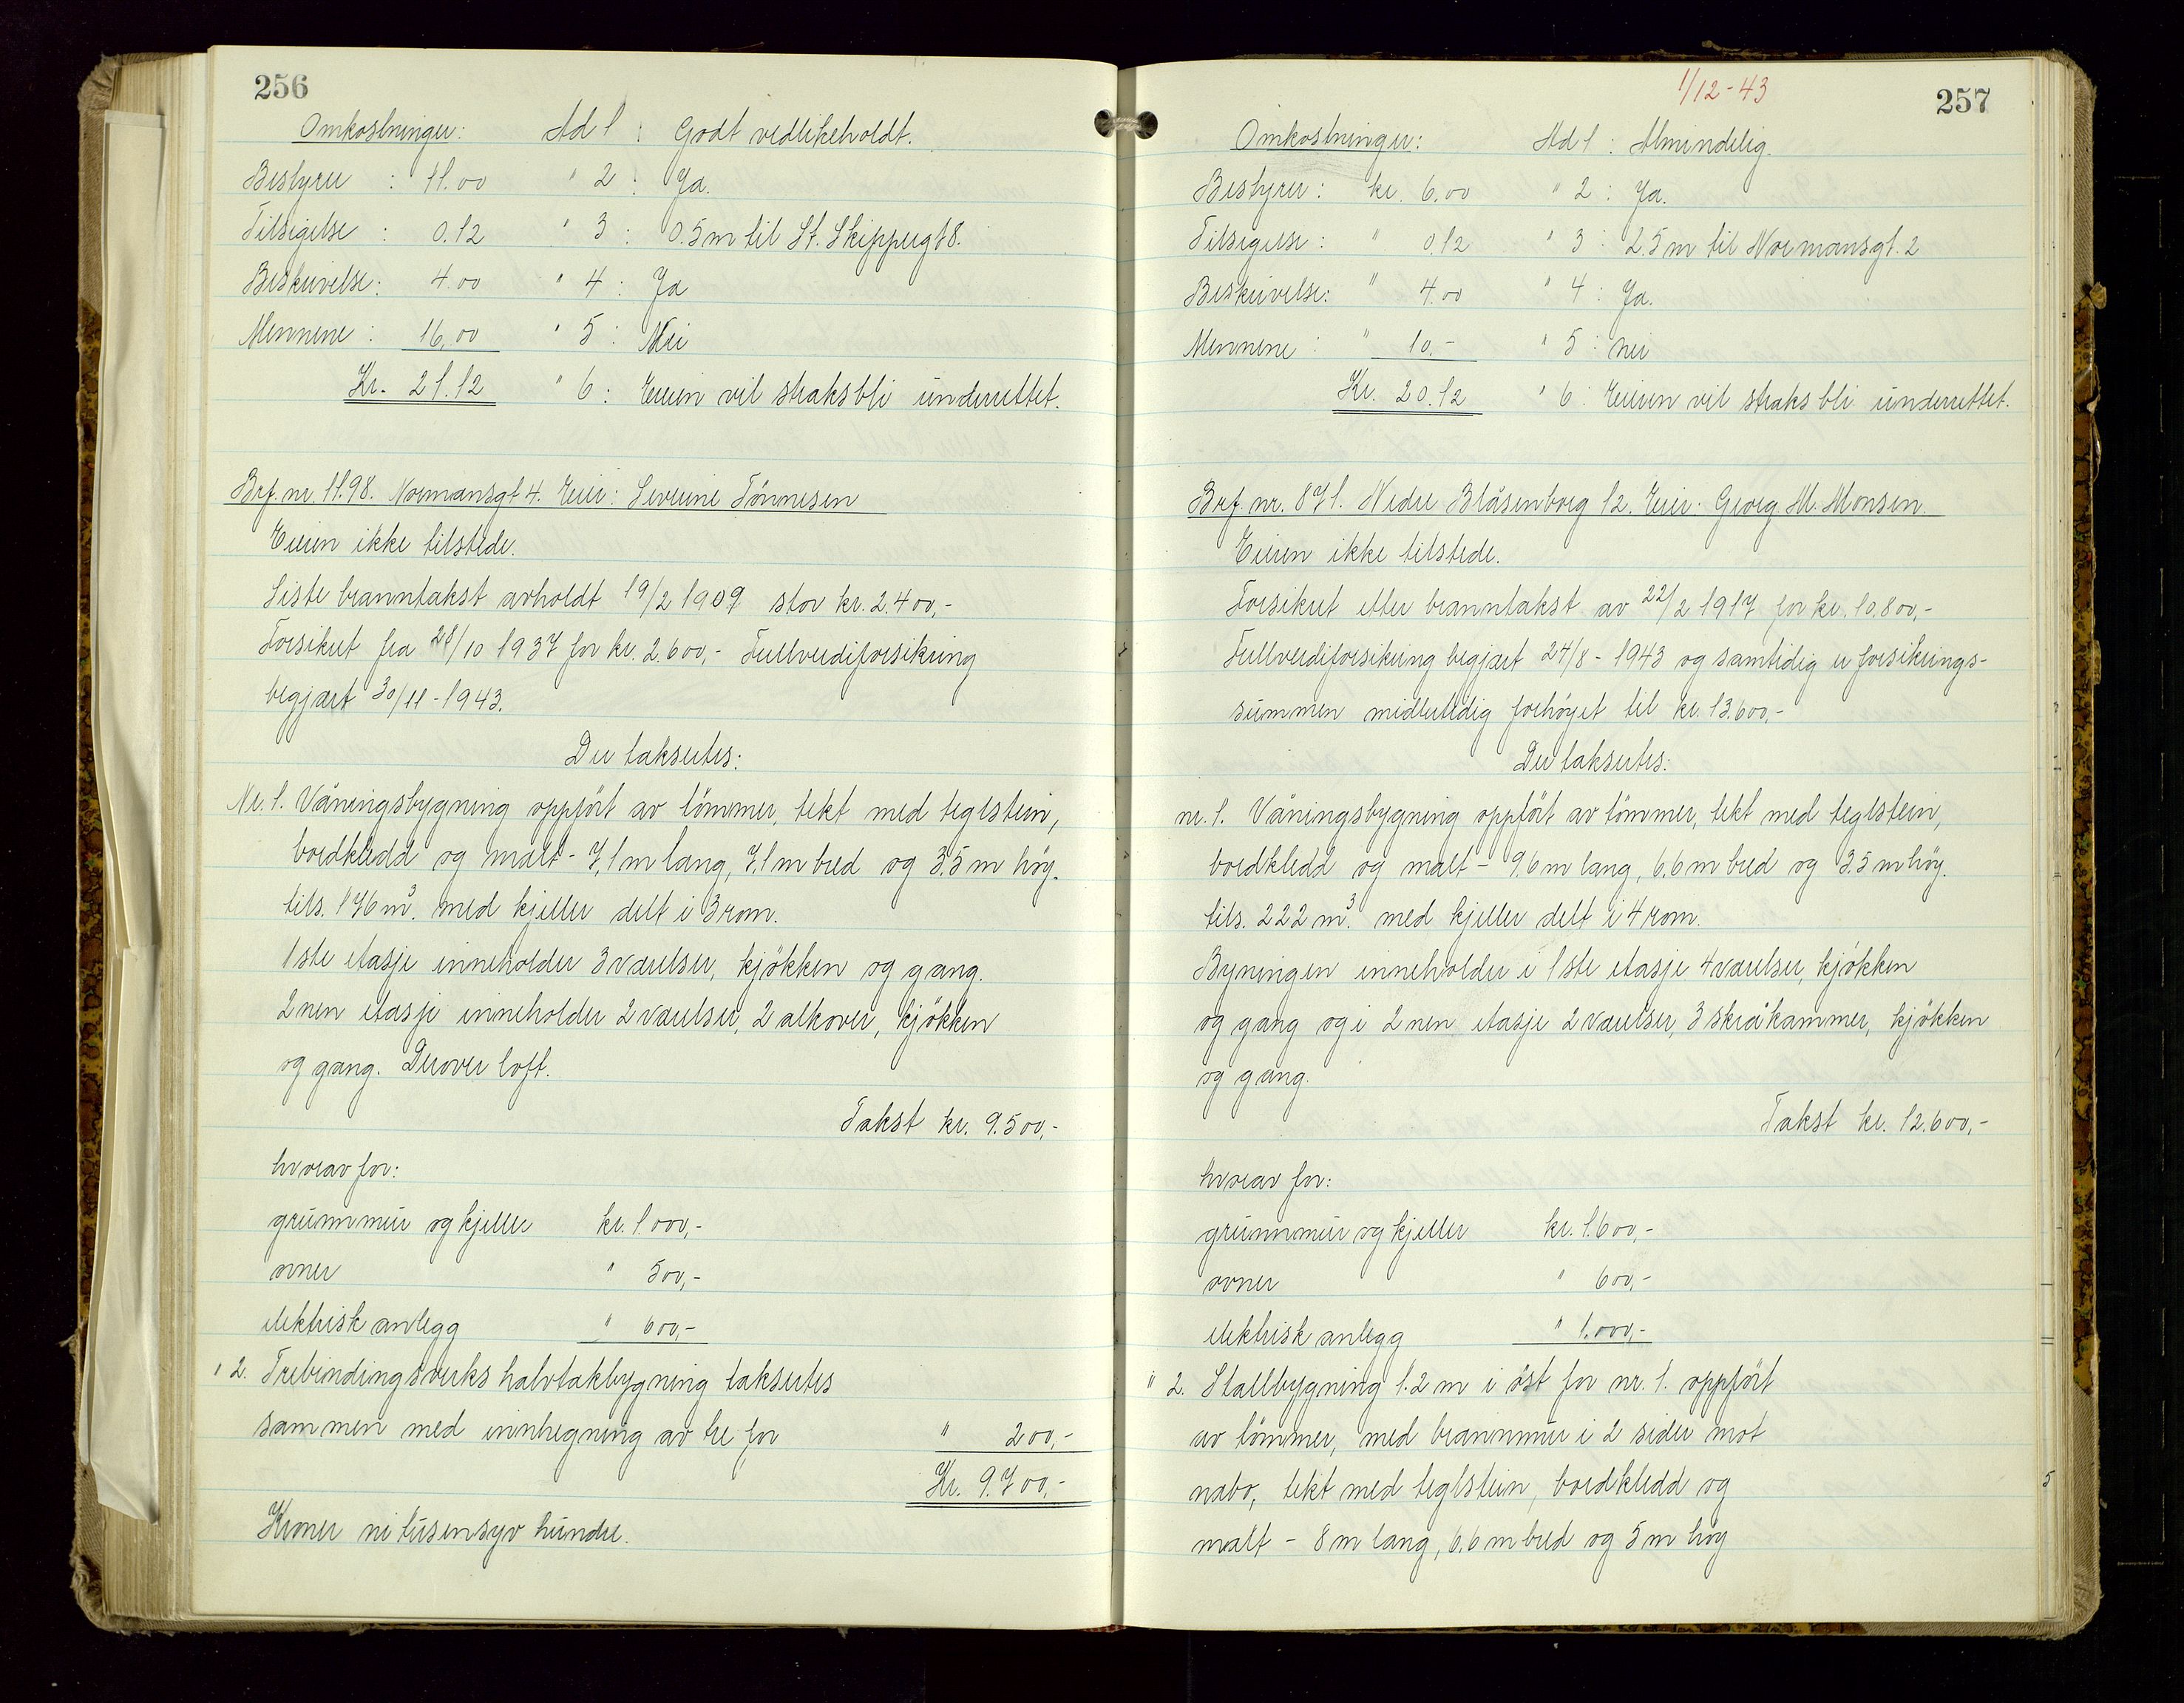 256
Omkostninger: Ad 1 : Godt vedlikeholdt.
Bestyrer : 11.00 " 2 : Ja.
Tilsigelse : 0.12 " 3 : 0.5 m til St. Skippergt 8.
Beskrivelse: 4.00 " 4 : Ja
Mennene : 16,00 " 5 : Nei
Kr. 21.12 " 6 : Eieren vil straks bli underrettet.
Brf. nr. 11.98. Normansgt 4. Eier: Severine Tönnesen
Eieren ikke tilstede.
Siste branntakst avholdt 19/2 1909 stor kr. 2.400,-
Forsikret fra 28/10 1937 for kr. 2.600,- Fullverdiforsikring
begjært 30/11 - 1943.
Der takseres:
Nr. 1. Våningsbygning oppfört av tömmer, tekt med teglstein,
bordkledd og malt - 7,1 m lang, 7,1 m bred og 3.5 m höy.
tils. 176 m³. med kjeller delt i 3 rom.
1ste etasje inneholder 3 værelser, kjökken og gang.
2nen etasje inneholder 2 værelser, 2 alkover, kjökken
og gang. Derover loft.
Takst kr. 9.500,-
hvorav for:
grunnmur og kjeller kr. 1.000,-
ovner " 500,-
elektrisk anlegg " 600,-
" 2. Trebindingsverks halvtakbygning takseres
sammen med innhegning av tre for " 200,-
Kr. 9.700,-
Kroner ni tusen syv hundre.
1/12-43
257
Omkostninger: Ad 1 : Almindelig.
Bestyrer : kr. 6.00 " 2 : Ja.
Tilsigelse : " 0.12 " 3 : 2.5 m til Normansgt. 2
Beskrivelse: " 4.00 " 4 : Ja.
Mennene : " 10.- " 5 : nei
Kr. 20.12 " 6 : Eieren vil straks bli underrettet.
Brf. nr. 871. Nedre Blåsenborg 12. Eier: Georg M. Monsen.
Eieren ikke tilstede.
Forsikret etter branntakst av 22/2 1917 for kr. 10.800,-
Fullverdiforsikring begjært 24/8 - 1943 og samtidig er forsikrings-
summen midlertidig forhöyet til kr. 13.600,-
Der takseres:
nr. 1. Våningsbygning oppfört av tömmer, tekt med teglstein,
bordkledd og malt - 9.6 m lang, 6.6 m bred og 3.5 m höy.
tils. 222 m³. med kjeller delt i 4 rom.
Byningen inneholder i 1ste etasje 4 værelser, kjökken
og gang og i 2nen etasje 2 værelser, 3 skråkammer, kjökken
og gang.
Takst kr. 12.600,-
hvorav for:
grunnmur og kjeller kr. 1.600,-
ovner " 600,-
elektrisk anlegg " 1.000,-
" 2. Stallbygning 1.2 m i öst for nr. 1. oppfört
av tömmer, med brannmur i 2 sider mot
nabo, tekt med teglstein, bordkledd og
malt - 8 m lang, 6.6 m bred og 5 m höy